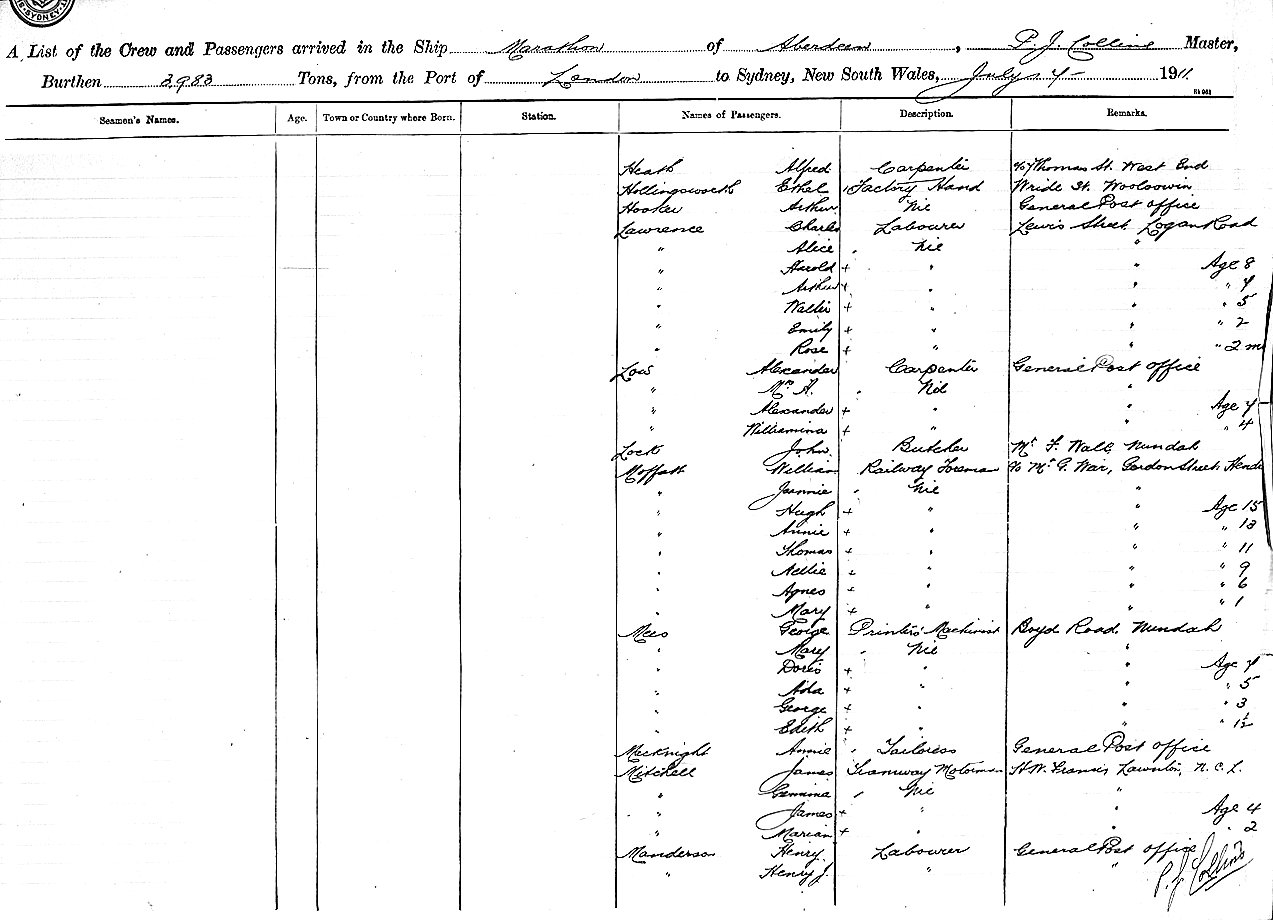 SYDNEY
A List of the Crew and Passengers arrived in the Ship Marathon of Aberdeen, P. J. Collins Master,
Burthen 3983 Tons, from the Port of London to Sydney, New South Wales, July 4 1911
Seamen's Names. Age. Town or Country where Born. Station. Names of Passengers. Description. Remarks.
Heath Alfred Carpenter c/o Thomas St. West End
Hollingsworth Ethel Factory Hand Wride St. Wooloowin
Hooker Arthur Nil General Post office
Lawrence Charles Labourer Lewis Street Logan Road
" Alice Nil "
" Harold + " " Age 8
" Arthur + " " " 7
" Walter + " " " 5
" Emily + " " " 2
" Rose + " " " 2 m
Low Alexander Carpenter General Post office
" Mrs A. Nil "
" Alexander + " " Age 7
" Williamina + " " " 4
Lock John Butcher Mr F. Wall, Nundah
Moffatt William Railway Foreman c/o Mr G. Wair, Gordon Street,
" Jeannie Nil "
" Hugh + " " Age 15
" Annie + " " " 13
" Thomas + " " " 11
" Nellie + " " " 9
" Agnes + " " " 6
" Mary + " " " 1
Mees George Printers' Machinist Boyd Road Nundah
" Mary Nil "
" Doris + " " Age 7
" Ada + " " " 5
" George + " " " 3
" Edith + " " " 1½
Mecknight Annie Tailoress General Post office
Mitchell James Tramway Motorman H.W. Francis Lawnton, N.C.L.
" Gemima Nil "
" James + " " Age 4
" Marian + " " " 2
Manderson Henry Labourer General Post office
" Henry J. "
P. J. Collins